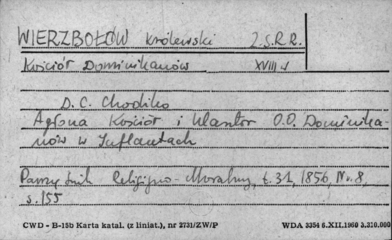 WIERZBOŁÓW Królewski Z.S.R.R.
Kościół Dominikanów XVIII w
D. C. Chodźko
Agłona Kościół i Klasztor O.O. Dominika-
nów w Inflantach
Pamiętnik Religijno-Moralny, t. 31, 1856, Nr. 8,
s. 155
CWD - B-15b Karta katal. (z liniat.), nr 2731/ZW/P WDA 3354 6.XII.1960 3.210.000